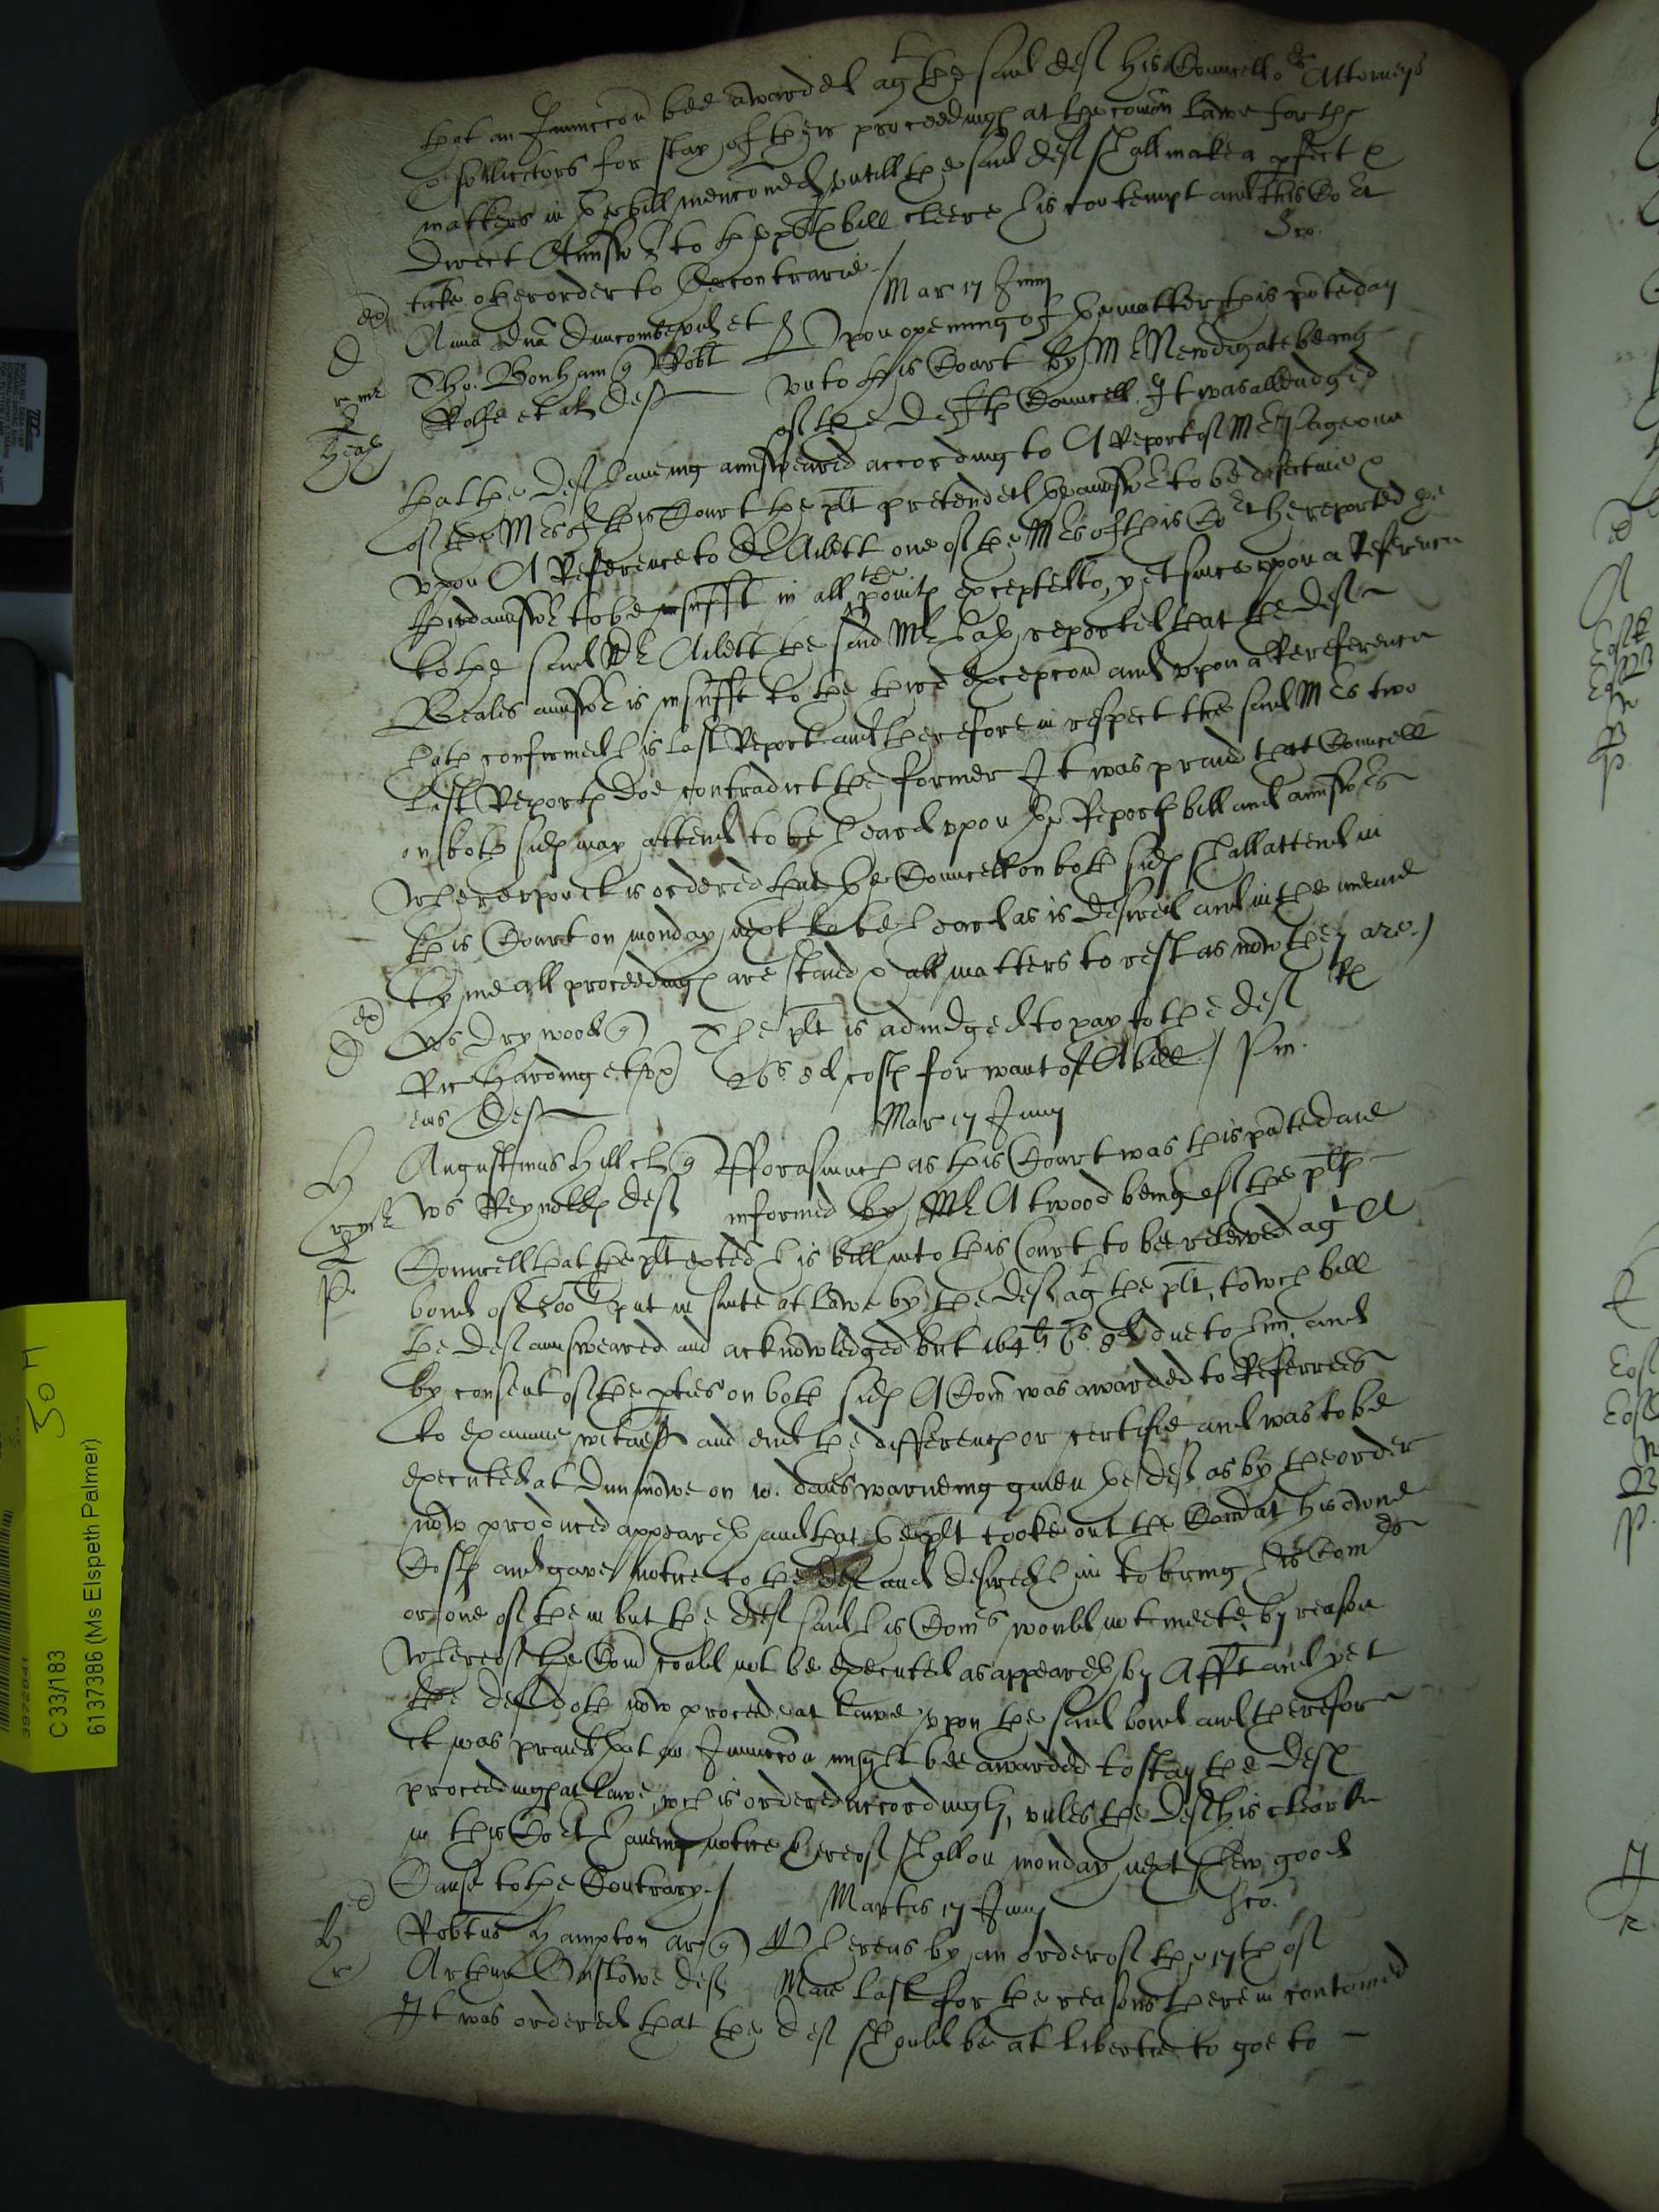 that an Iniunccon bee awarded agt the said deft his Councello:rs Attorneys
& sollicitors for stay of their proceedings at the comon Lawe for the
matters in the bill menconed vntill the said deft shall make a pfect &
direct Answr to the plts bill cleere his contempt and this Cort
take other order to the contrarie /
Mar 17 Junij
Anna dna Duncombe vid et
Tho: Bonham q Robt
Rolfe et al deft
Vpon opening of the matter this pnte day
vnto this Court by Mr Newdigate being
of the defts Councell. It was alleadged
that the deft haueing answeared according to A Report of Mr Page one
of the Mrs of this Court the plt pretended the answr to be defectiue &
vpon A Reference to Sr Ailett one of the Mrs of this Cort he reported the
third answr to be insufft in all the points excepted to, yet since vpon a Reference
to the said Dr Ailett the said Mr reported that the deft
Beales answr is insufft to the third excepcon and vpon a Rereference
hath confirmed his last Report and therefore in respect the said Mrs two
last Reports doe contradict the former It was praied that Councell
on both sides may attend to be heard vpon the Reports bill and answrs
Wherevpon it is ordered that the Councell on both sides shall attend in
this Court on monday next to be heard as is desired and in the meane
tyme all proceedings are staied & all matters to rest as now they are /
Ws Drywood q
Ric Harding et vx
eius deft
The plt is adiudged to pay to the deft
26s 8d costs for want of A bill / Pm.
Mar 17 Junij
Augustinus Hill cl q
Ws Reynolds deft
Fforasmuch as this Court was this pnte daie
informed by Mr Atwood being of the plts
Councell that the plt exted his bill into this Court to bee releived agt A
bond of 500li put in suite at Lawe by the deft agt the plt, to wch bill
the deft answeared and acknowledged but 164li 6s 8d due to him, and
by consent of the pties on both sides A Com was awarded to Referrees
to examine witness and end the differences or certifie and was to be
executed at Dunmowe on 10. daies warneing giuen the deft as by the order
now produced appeareth and that the plt tooke out the Com at his owne
Costs and gaue notice to the deft and desired him to bring his Comrs
or one of them but the deft said his Comrs would not meete, by reason
whereof the Com could not be executed as appeareth by Afft and yet
the deft doth now proceede at Lawe vpon the said bond and therefore
it was praied that an Iniunccon might bee awarded to stay the defts
proceedings at lawe, wch is ordered accordingly, vnles the deft his clearke
in this Cort haueing notice hereof shall on monday next shew good
Cause to the Contrary /
Martis 17 Junij
Robtus Hampton ar q
Arthur Onslowe deft
Whereas by an order of the 17th of
Maie last for the reasons therein contained
It was ordered that the deft should be at libertie to goe to
3972841
C 33/183
6137386 (Ms Elspeth Palmer)
50 H